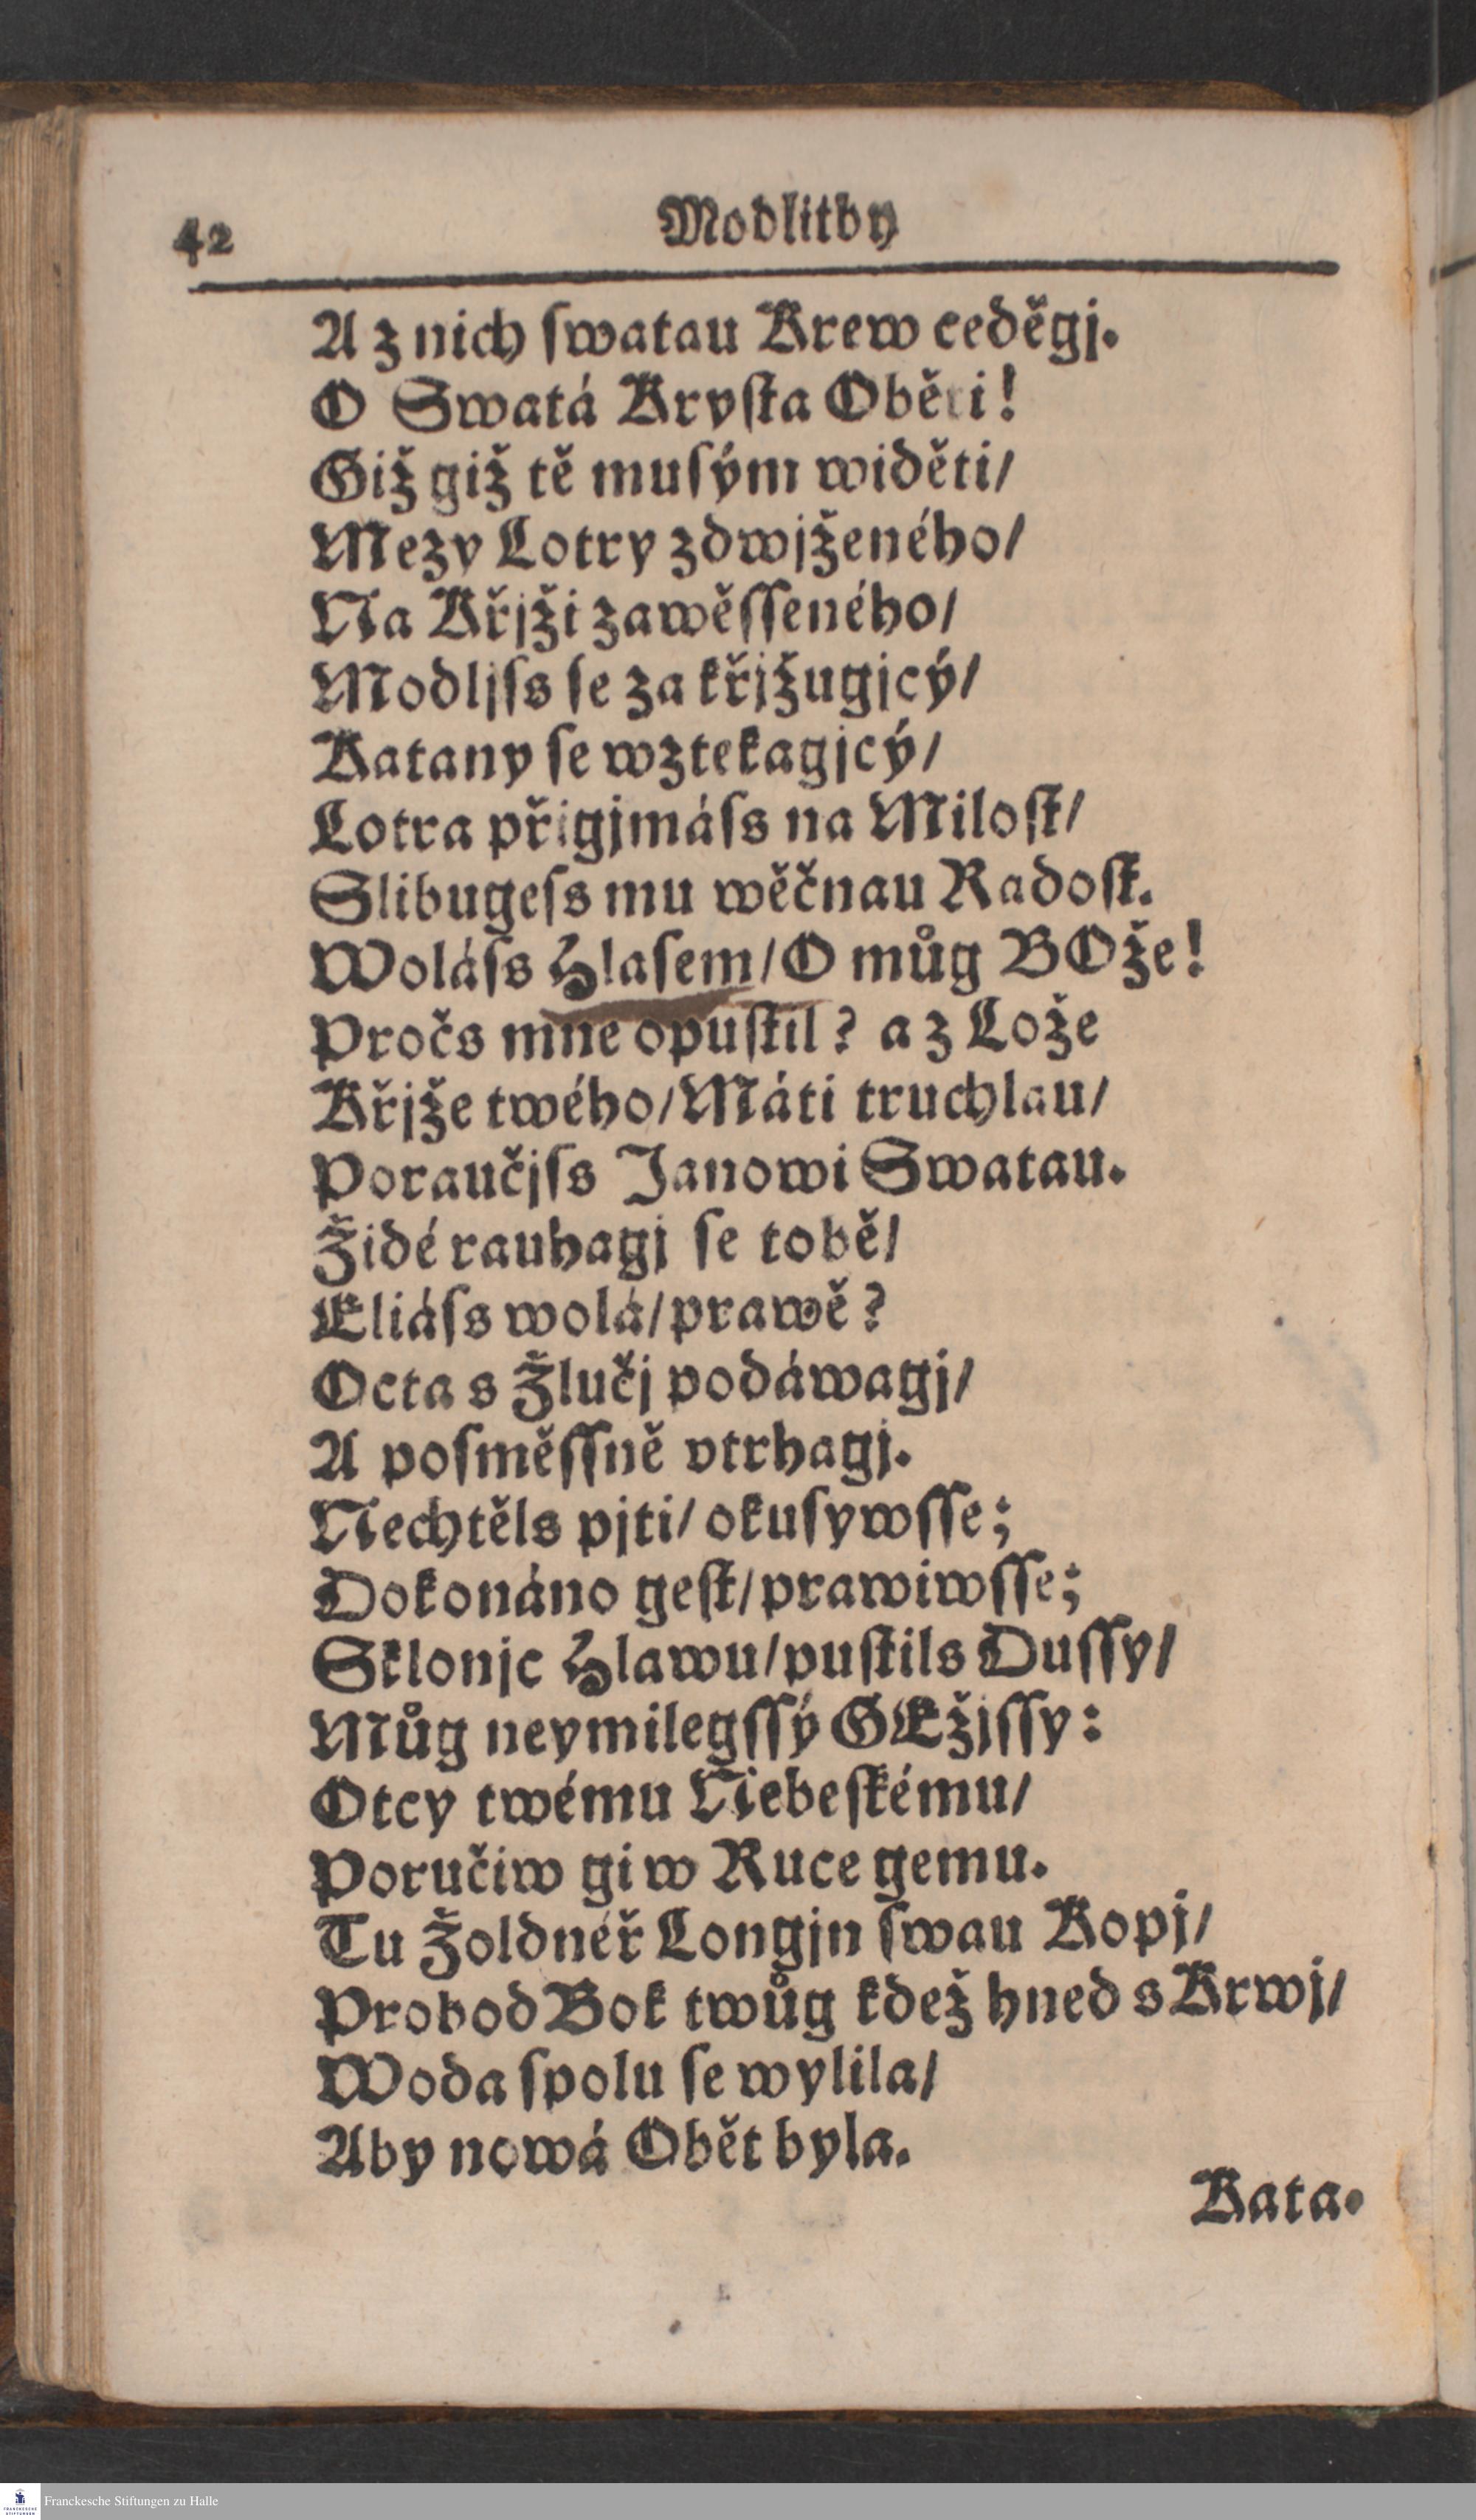 42
Modlitby
A z nich ſwatau Krew ceděgj.
O Swatá Kryſta Oběti!
Giž giž tě muſým widěti/
Mezy Lotry zdwjženého/
Na Křjži zawěſſeného/
Modljſs ſe za křjžugjcý/
Katany ſe wztekagjcý/
Lotra přigjmáſs na Miloſt/
Slibugeſs mu wěčnau Radoſt.
Woláſs Hlaſem/ O můg BOže!
Pročs mne opuſtil? a z Lože
Křjže twého/ Máti truchlau/
Poraučjſs Janowi Swatau.
Židé rauhagj ſe tobě/
Eliáſs wolá/ prawě?
Octa s Žlučj podáwagj/
A poſměſſně vtrhagj.
Nechtěls pjti/ okuſywſſe;
Dokonáno geſt/ prawiwſſe;
Sklonjc Hlawu/ puſtils Duſſy/
Můg neymilegſſý GEžjſſy:
Otcy twému Nebeſkému/
Poručiw gi w Ruce gemu.
Tu Žoldnéř Longjn ſwau Kopj/
Probod Bok twůg kdež hned s Krwj/
Woda ſpolu ſe wylila/
Aby nowá Obět byla.
Kata-
Franckesche Stiftungen zu Halle